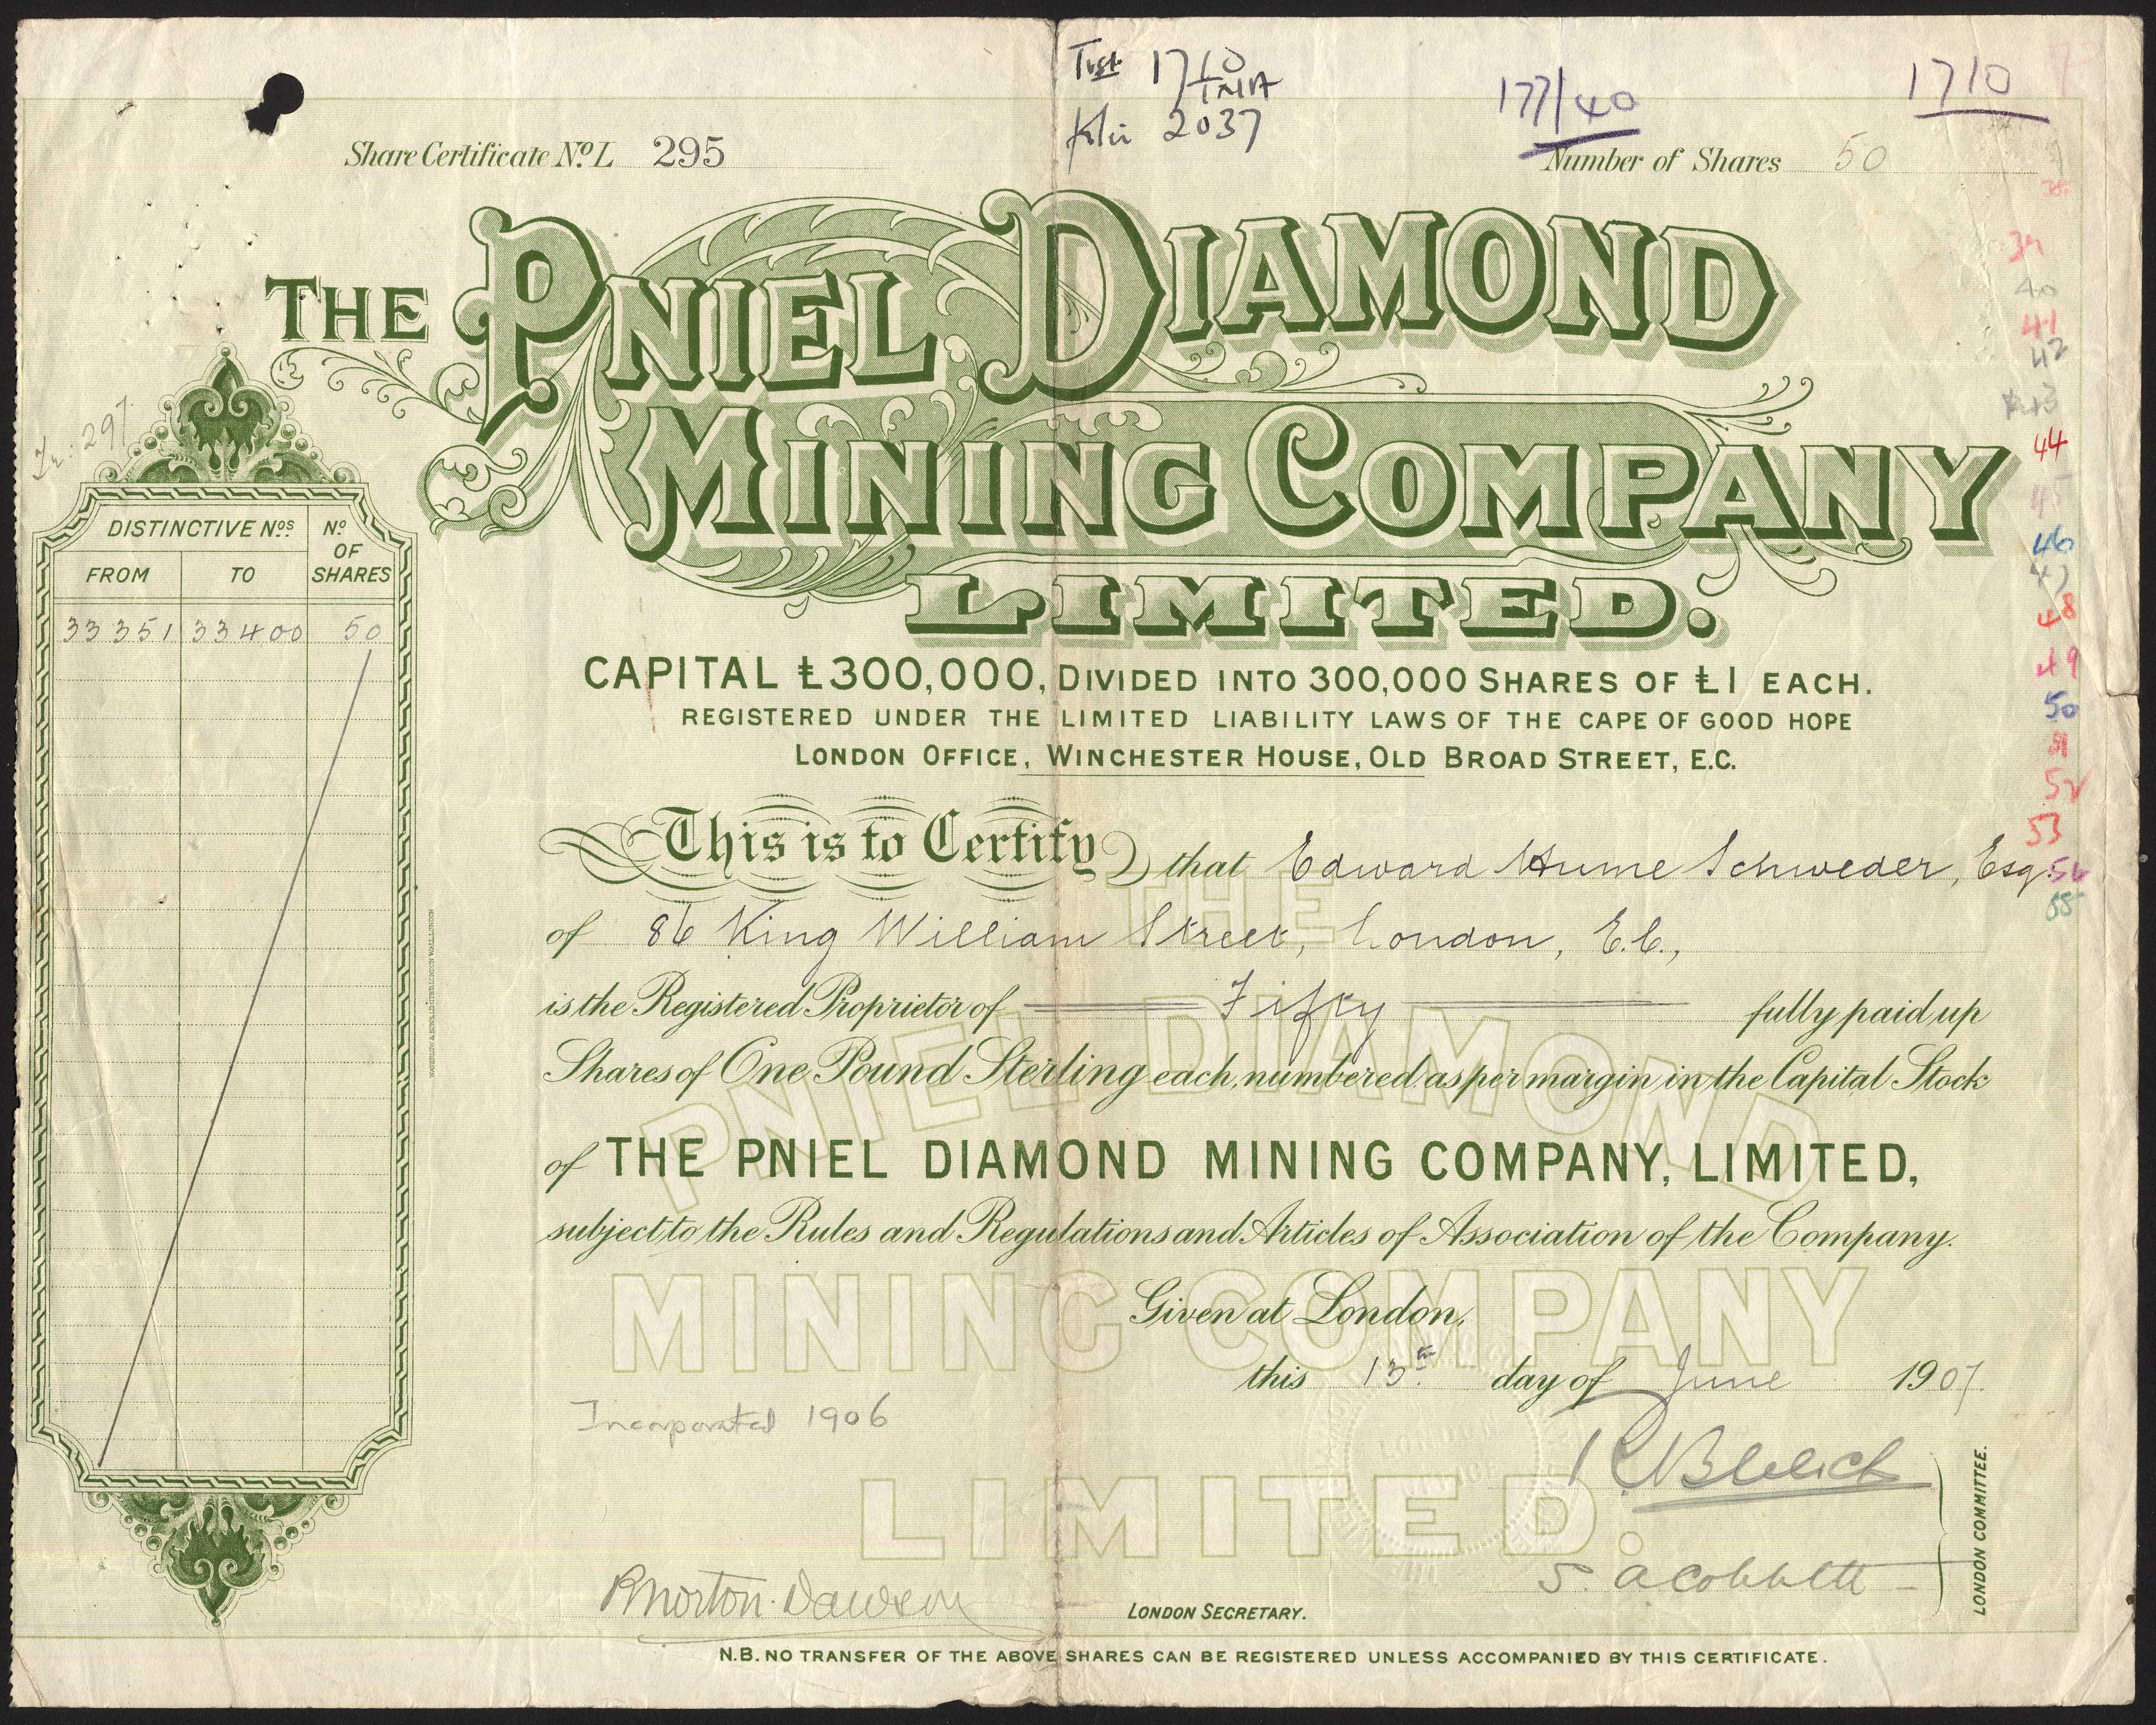 Trst 1710
TNA
Klu 2037
177/40
1710
Share Certificate No. L 295
Number of Shares 50
THE PNIEL DIAMOND
MINING COMPANY
LIMITED.
CAPITAL £300,000, DIVIDED INTO 300,000 SHARES OF £1 EACH.
REGISTERED UNDER THE LIMITED LIABILITY LAWS OF THE CAPE OF GOOD HOPE
LONDON OFFICE, WINCHESTER HOUSE, OLD BROAD STREET, E.C.
Tr: 297
DISTINCTIVE Nos No. OF SHARES
FROM TO
33351 33400 50
This is to Certify that Edward Hume Schweder, Esq.
of 86 King William Street, London, E.C.,
is the Registered Proprietor of Fifty fully paid up
Shares of One Pound Sterling each, numbered as per margin in the Capital Stock
of THE PNIEL DIAMOND MINING COMPANY, LIMITED,
subject to the Rules and Regulations and Articles of Association of the Company.
Given at London,
this 13th day of June 1907.
Incorporated 1906
S. A Cobbett
LONDON COMMITTEE.
R Morton. Dawson
LONDON SECRETARY.
N.B. NO TRANSFER OF THE ABOVE SHARES CAN BE REGISTERED UNLESS ACCOMPANIED BY THIS CERTIFICATE.
THE
PNIEL DIAMOND
MINING COMPANY
LIMITED.
39
40
41
42
43
44
45
46
47
48
49
50
51
52
53
54
55